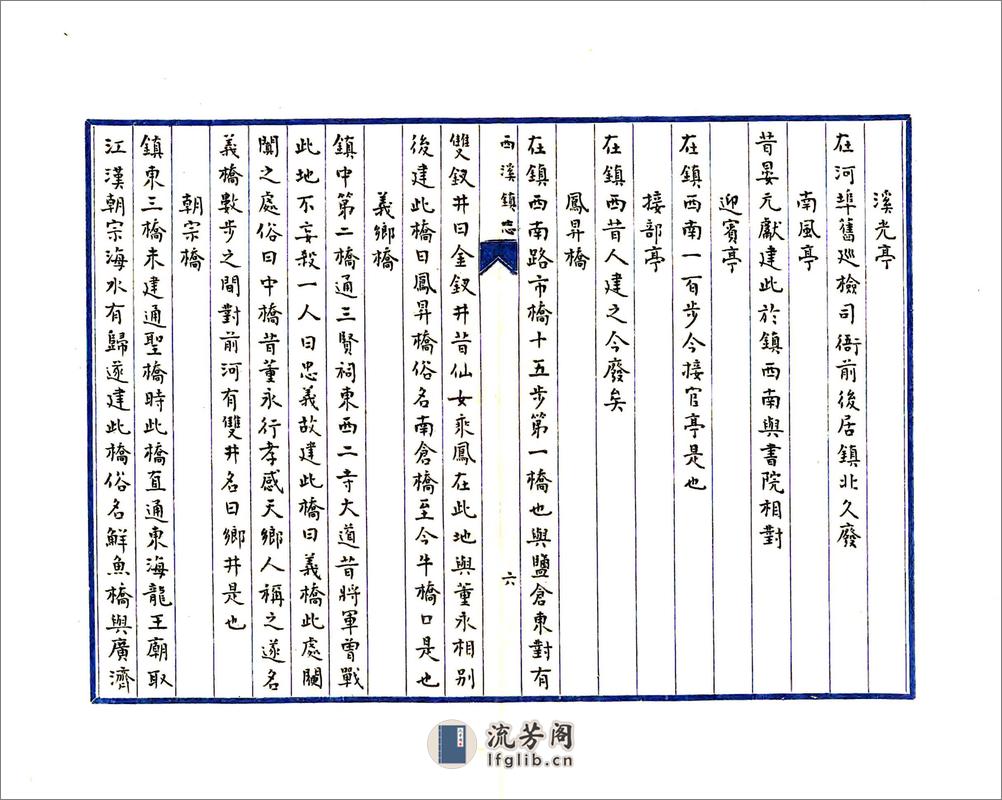 溪光亭
在河埠舊巡檢司衙前後居鎮北久廢
南風亭
昔晏元獻建此於鎮西南與書院相對
迎賓亭
在鎮西南一百步今接官亭是也
接部亭
在鎮西昔人建之今廢矣
鳳昇橋
在鎮西南路市橋十五步第一橋也與鹽倉東對有
西溪鎮志
六
雙釵井曰金釵井昔仙女乘鳳在此地與董永相別
後建此橋曰鳳昇橋俗名南倉橋至今牛橋口是也
義鄉橋
鎮中第二橋通三賢祠東西二寺大道昔將軍曾戰
此地不妄殺一人曰忠義故建此橋曰義橋此處闤
闠之處俗曰中橋昔董永行孝感天鄉人稱之遂名
義橋數步之間對前河有雙井名曰鄉井是也
朝宗橋
鎮東三橋未建通聖橋時此橋直通東海龍王廟取
江漢朝宗海水有歸遂建此橋俗名鮮魚橋與廣濟
流芳阁
lfglib.cn